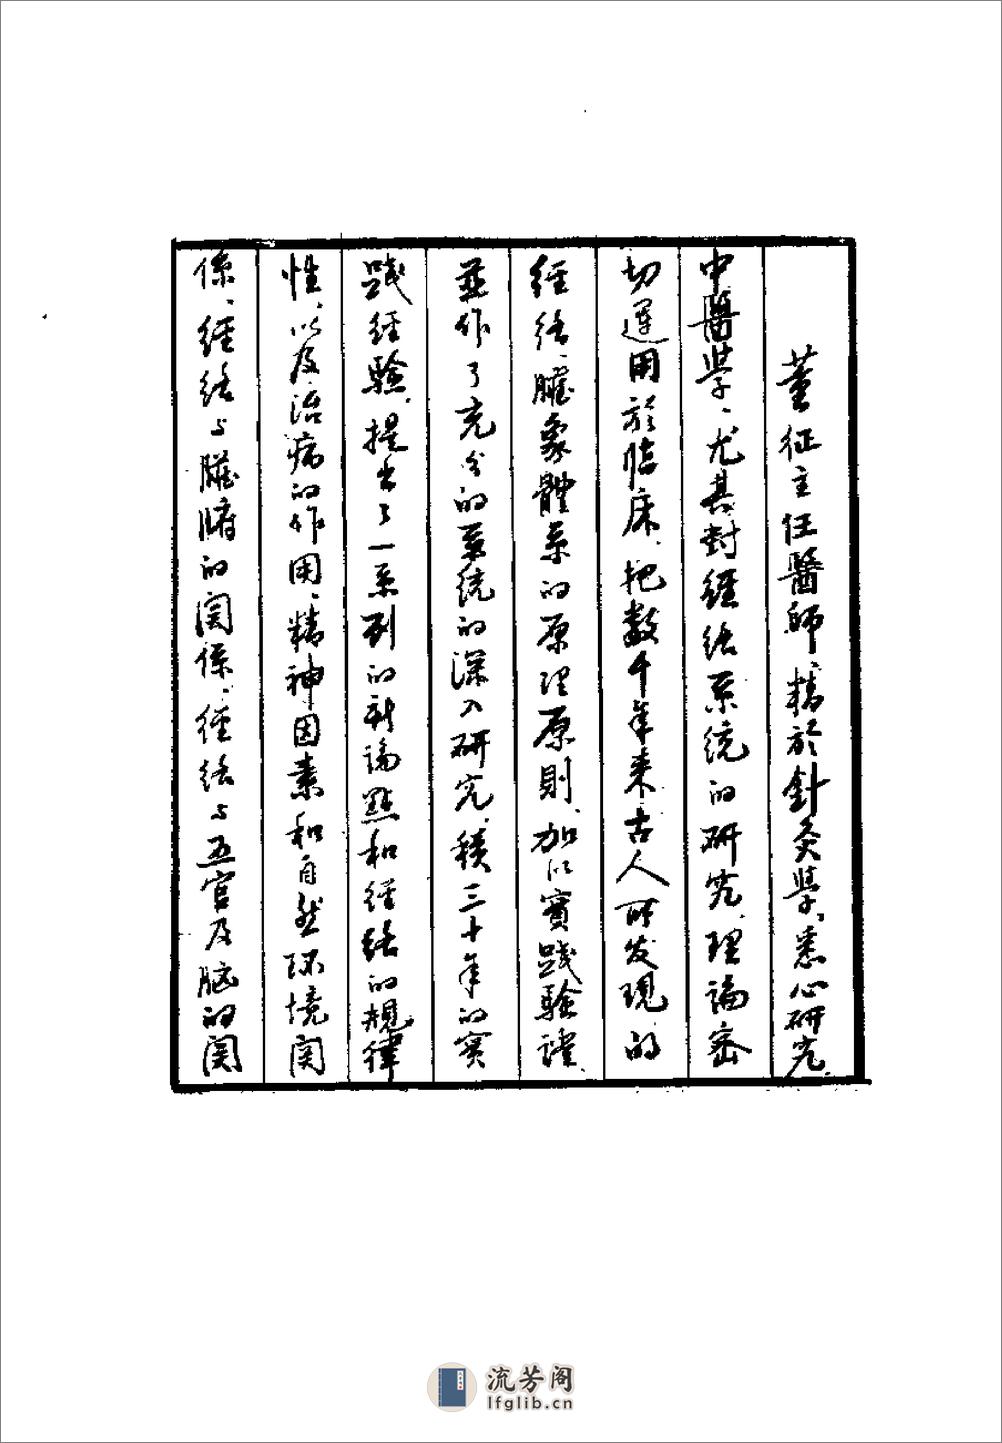 董征主任醫師，精於針灸學，悉心研究
中醫學，尤其對經络系統的研究，理論密
切運用於临床，把數千年来古人所发現的
经络，臟象體系的原理原則，加以實践驗證，
並作了充分的系統的深入研究，積三十年的实
践经驗，提出了一系列的新論點和经络的規律
性，以及治病的作用，精神因素和自然环境関
係，经络与臟腑的関係，经络与五官及脑的関
流芳阁
lfglib.cn